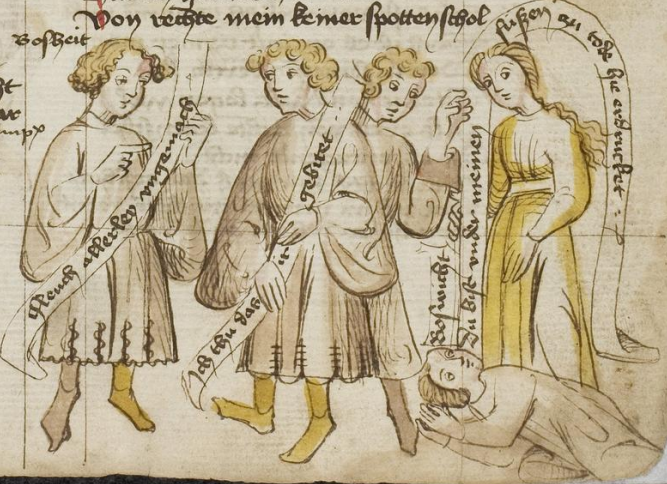 Von rechte mein keiner spotten schol
Bosheit
allerley vngemach
Ich thu das ir gebitet
boswicht
Du bist vnder meinen fuszen zu tode hie erdrucket